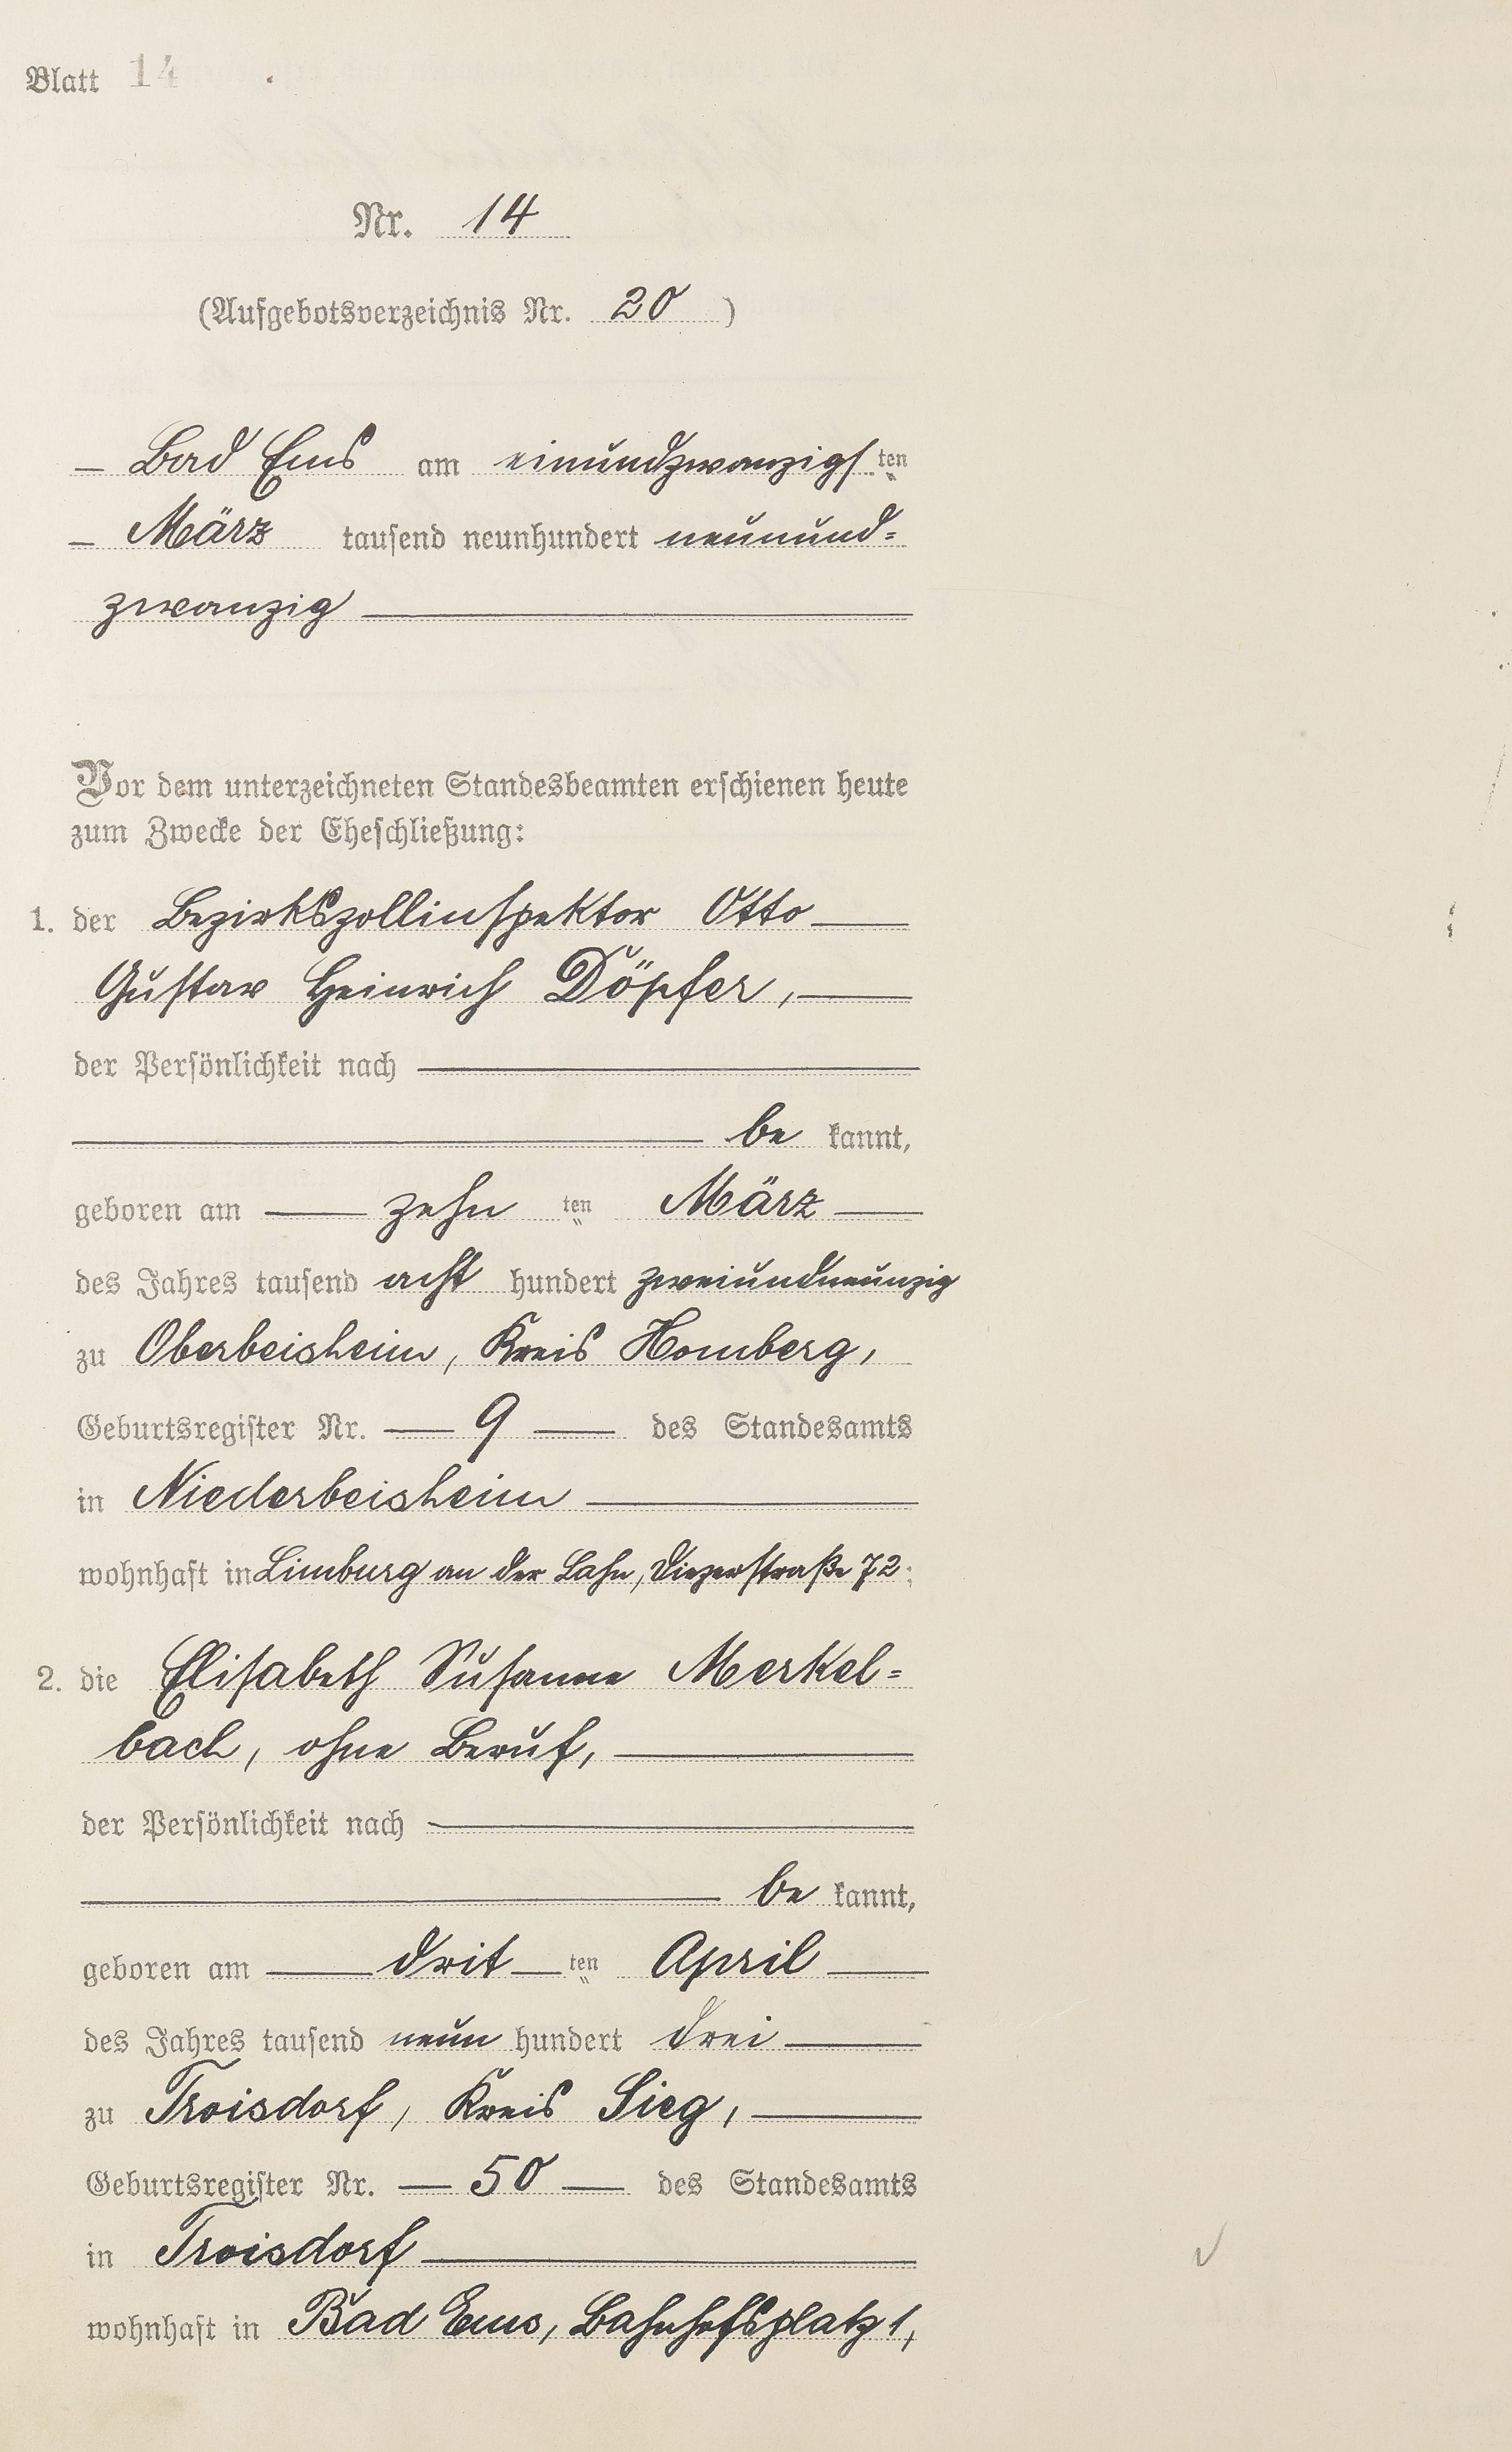 Blatt 14
Nr. 14
(Aufgebotsverzeichnis Nr. 20 )
– Bad Ems am einundzwanzigsten
– März tausend neunhundert neunund=
zwanzig
Vor dem unterzeichneten Standesbeamten erschienen heute
zum Zwecke der Eheschließung:
1. der Bezirkszollinspektor Otto
Gustav Heinrich Döpfer,
der Persönlichkeit nach
be kannt,
geboren am zehn ten März
des Jahres tausend acht hundert zweiundneunzig
zu Oberbeisheim, Kreis Homberg,
Geburtsregister Nr. 9 des Standesamts
in Niederbeisheim
wohnhaft in Limburg an der Lahn, Diezerstraße 72;
2. die Elisabeth Susanne Merkel=
bach, ohne Beruf,
der Persönlichkeit nach
be kannt,
geboren am drit ten April
des Jahres tausend neun hundert drei
zu Troisdorf, Kreis Sieg,
Geburtsregister Nr. 50 des Standesamts
in Troisdorf
wohnhaft in Bad Ems, Bahnhofsplatz 1,